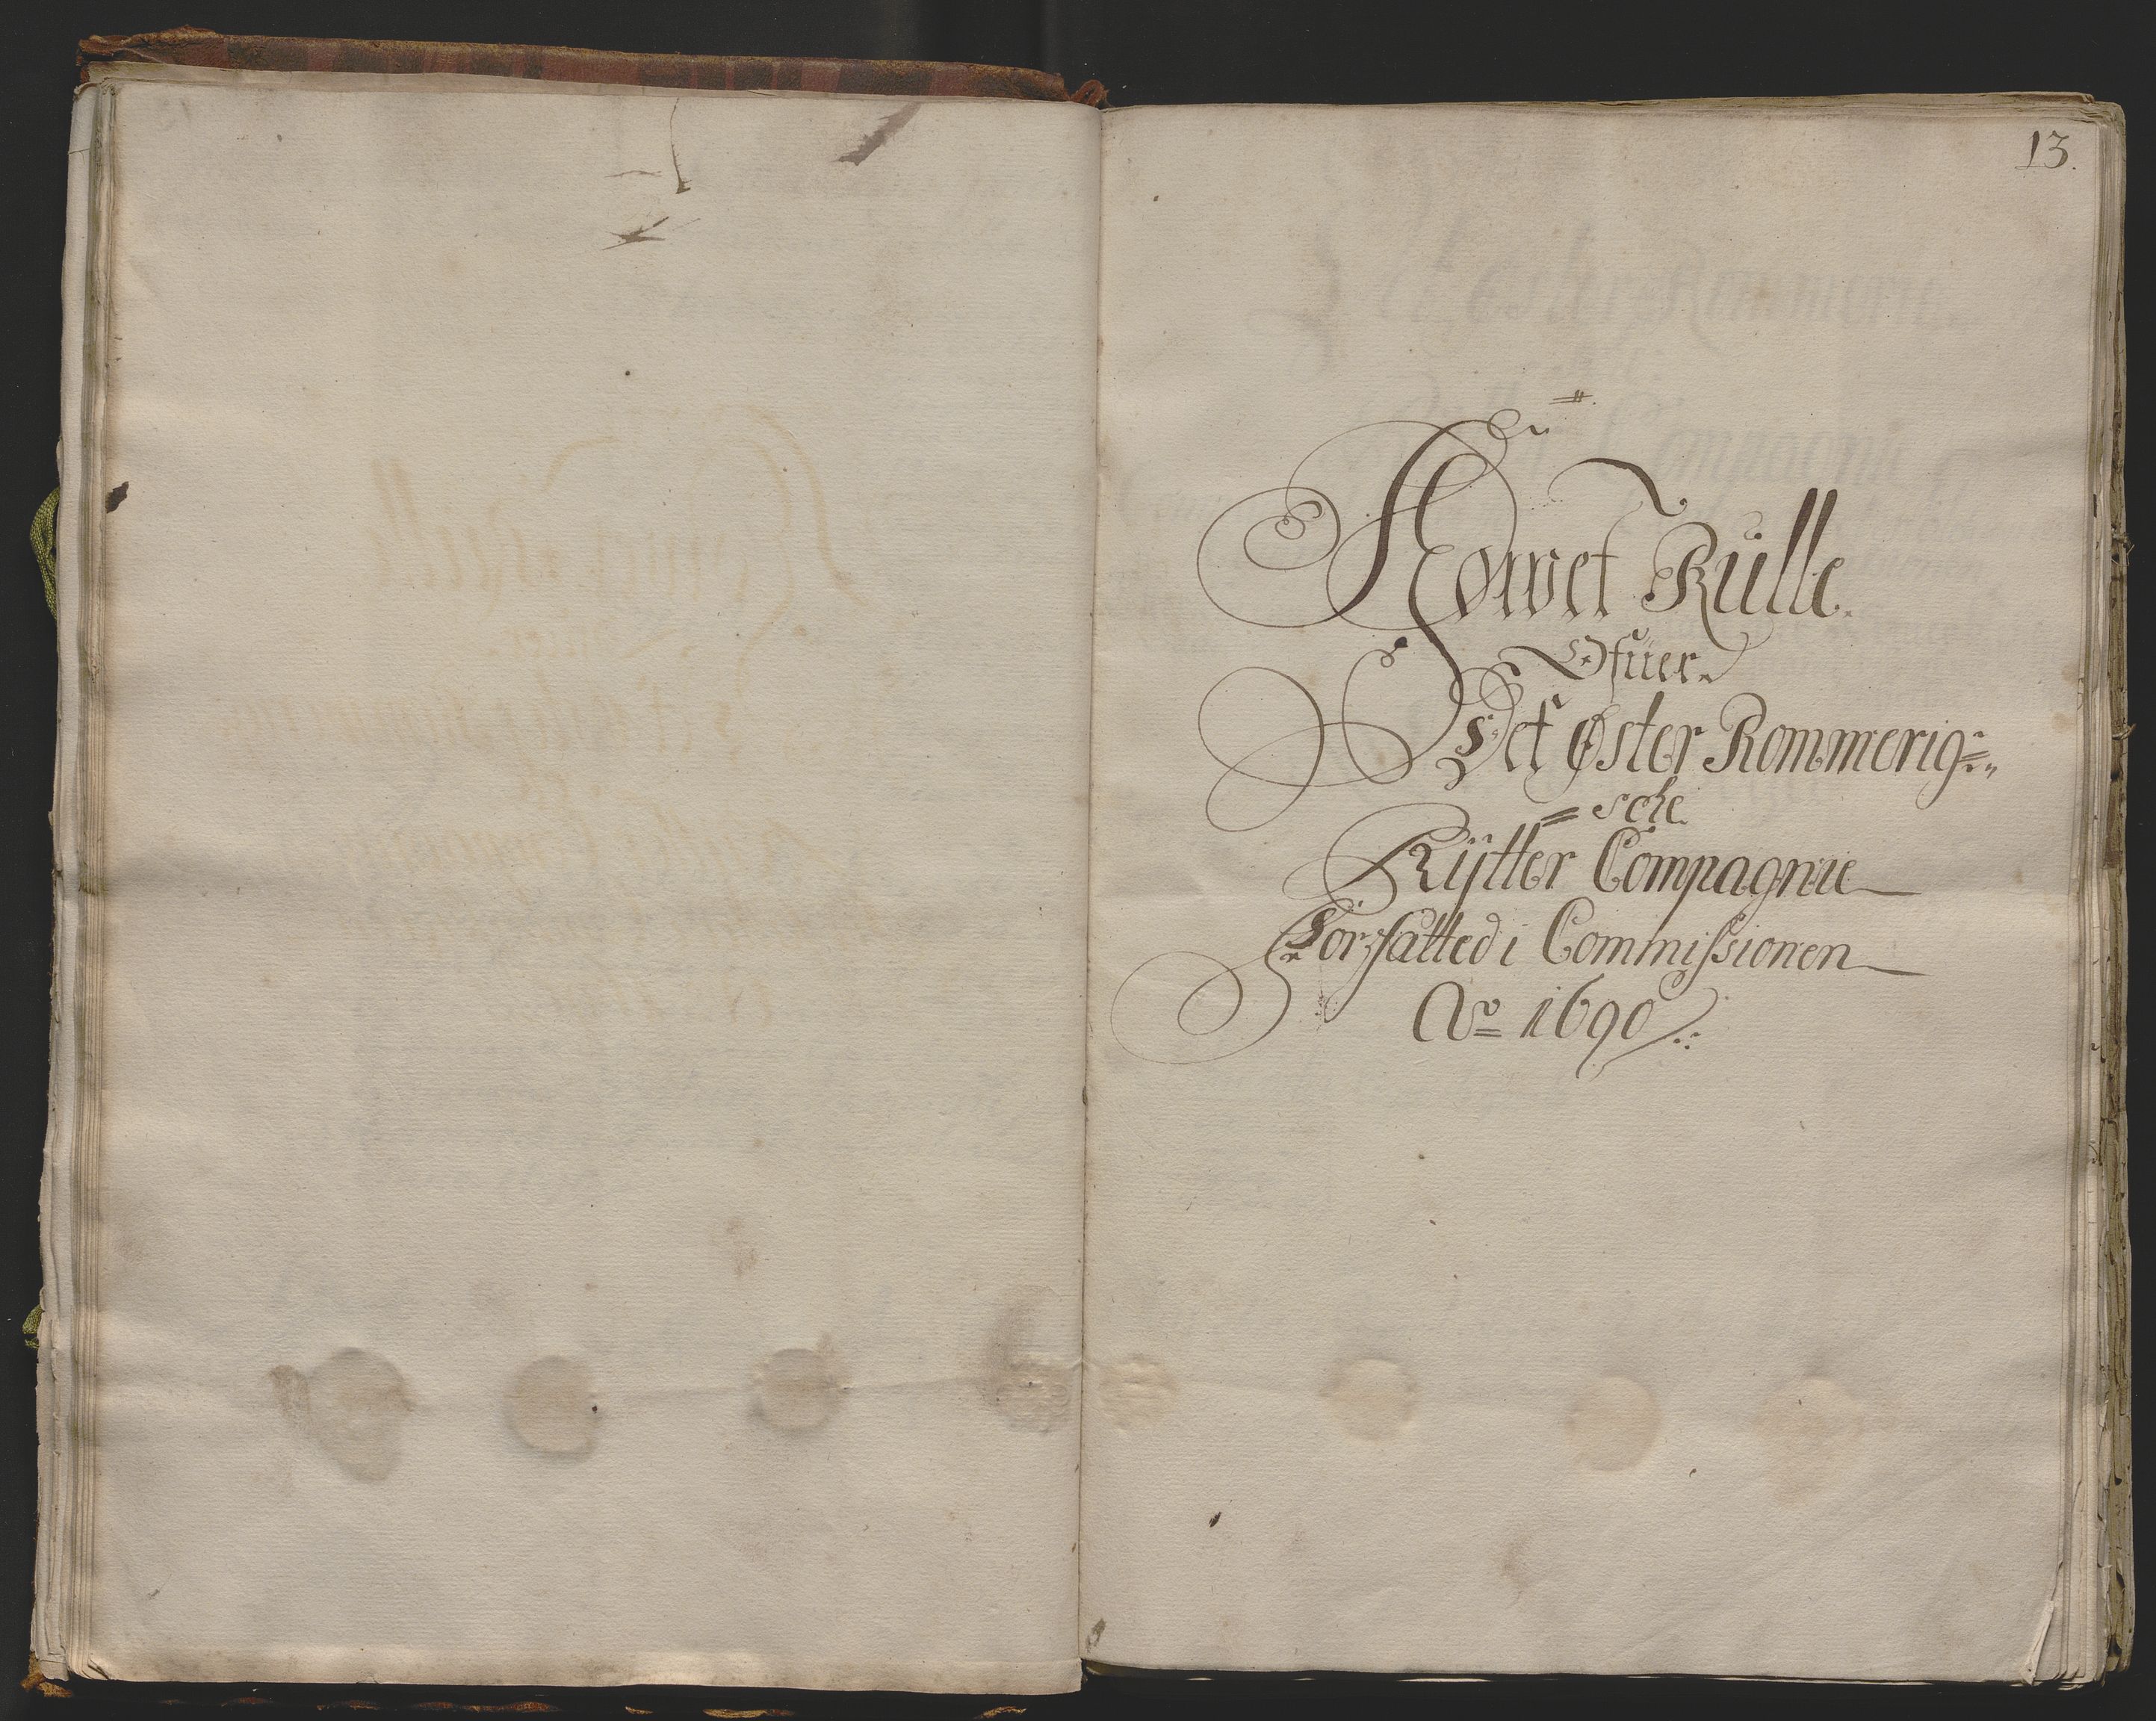 13.
Howet Rülle
Ofüer
Det Øster Rommerig=
= sche
Rÿtter Compagnie
Forfatted i Commissionen
Ao 1690